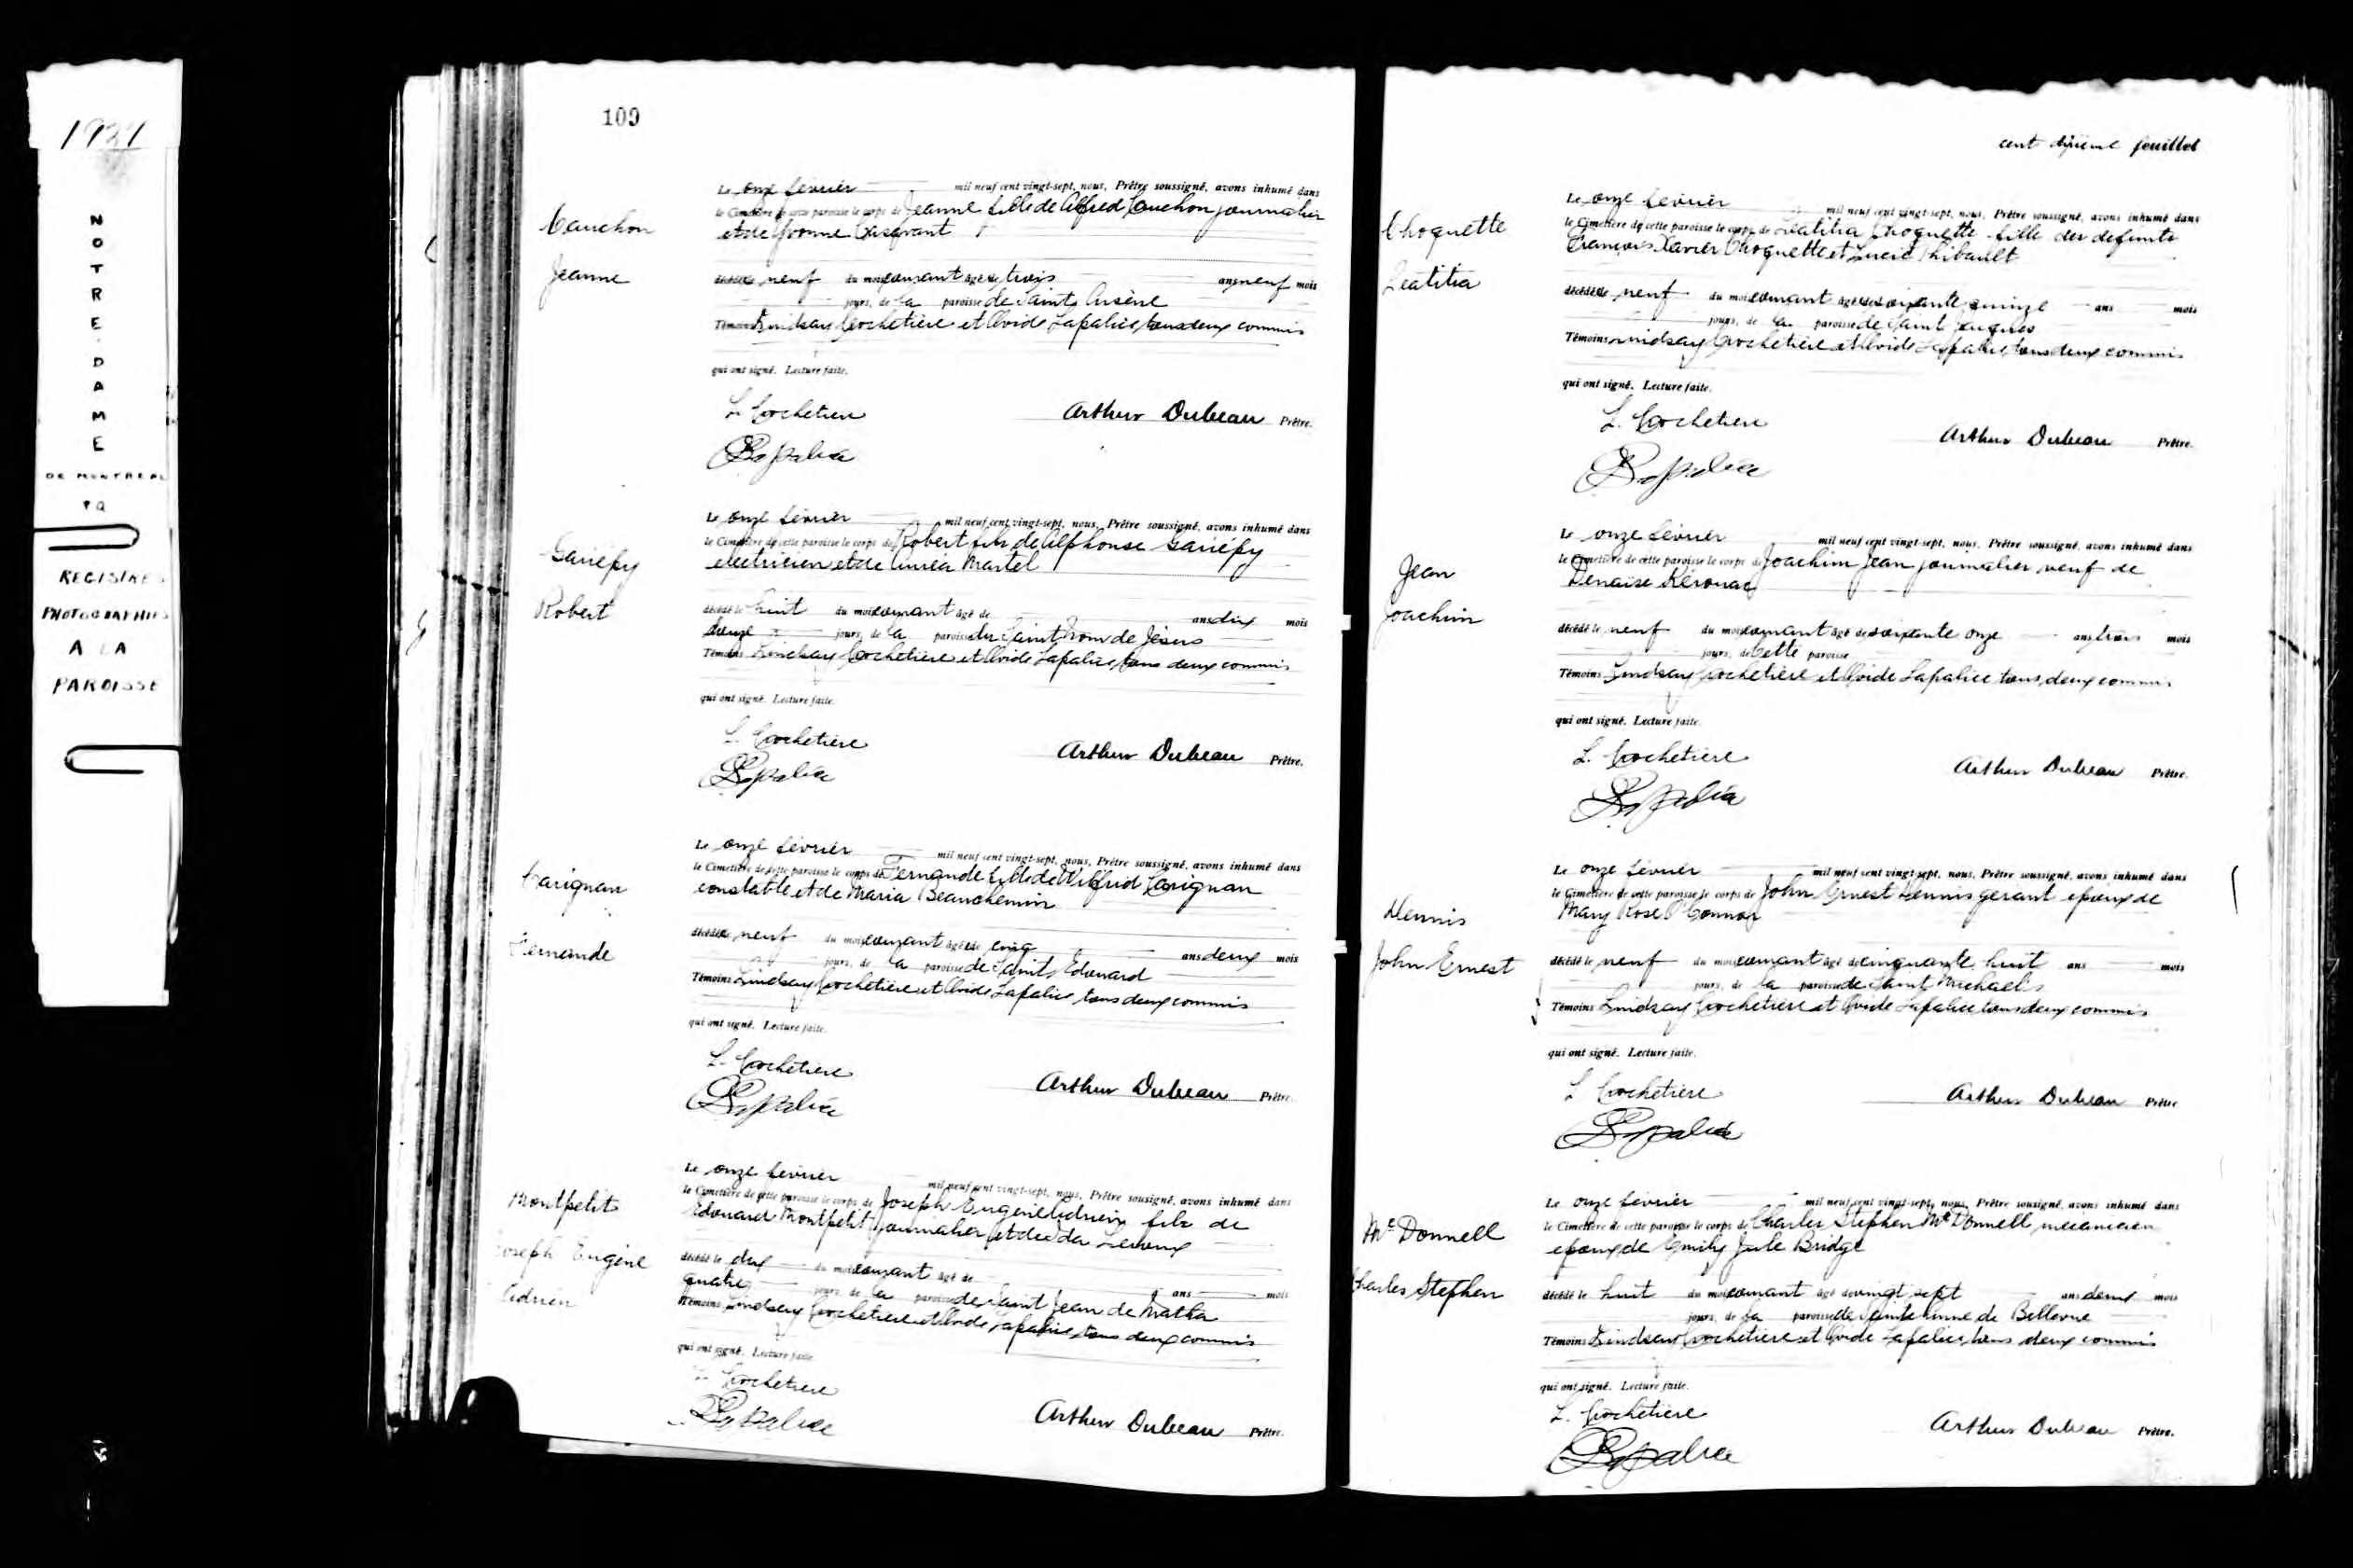 1927
NOTRE-DAME
DE MONTREAL
PQ
REGISTRES
PHOTOGRAPHIES
A LA
PAROISSE
109
Cauchon
Jeanne
Le onze février mil neuf cent vingt-sept, nous, Prêtre soussigné, avons inhumé dans
le Cimetière de cette paroisse le corps de Jeanne fille de Alfred Cauchon journalier
et de Yvonne
décédée neuf du mois courant âgée de trois ans neuf mois
jours, de la paroisse de Saint Arsène
Témoins Lindsay Crochetière et Ovide Lapalice, tous deux commis
qui ont signé. Lecture faite.
L. Crochetière
Arthur Dubeau Prêtre.
Lapalice
Gariépy
Robert
Le onze février mil neuf cent vingt-sept, nous, Prêtre soussigné, avons inhumé dans
le Cimetière de cette paroisse le corps de Robert fils de Alphonse Gariépy
electricien et de Martel
décédé le huit du mois courant âgé de ans dix mois
jours, de la paroisse du Saint Nom de Jésus
Témoins Lindsay Crochetière et Ovide Lapalice, tous deux commis
qui ont signé. Lecture faite.
L. Crochetière
Arthur Dubeau Prêtre.
Lapalice
Carignan
Fernande
Le onze février mil neuf cent vingt-sept, nous, Prêtre soussigné, avons inhumé dans
le Cimetière de cette paroisse le corps de Fernande fille de Wilfrid Carignan
constable et de Maria Beauchemin
décédée neuf du mois courant âgée de cinq ans deux mois
jours, de la paroisse de Saint Edouard
Témoins Lindsay Crochetière et Ovide Lapalice, tous deux commis
qui ont signé. Lecture faite.
L. Crochetière
Arthur Dubeau Prêtre.
Lapalice
Montpetit
Joseph Eugène
Adrien
Le onze février mil neuf cent vingt-sept, nous, Prêtre sousigné, avons inhumé dans
le Cimetière de cette paroisse le corps de Joseph Eugène Adrien fils de
Edouard Montpetit journalier et de Ida
décédé le dix du mois courant âgé de ans mois
quatre jours, de la paroisse de Saint Jean de Matha
Témoins Lindsay Crochetière et Ovide Lapalice, tous deux commis
qui ont signé. Lecture faite.
L. Crochetière
Arthur Dubeau Prêtre.
Lapalice
cent dixième feuillet
Choquette
Leatitia
Le onze février mil neuf cent vingt-sept, nous, Prêtre soussigné, avons inhumé dans
le Cimetière de cette paroisse le corps de Leatitia Choquette fille des defunts
François Xavier Choquette et Lucie Thibault
décédée neuf du mois courant âgée de soixante quinze ans mois
jours, de la paroisse de Saint Jacques
Témoins Lindsay Crochetière et Ovide Lapalice, tous deux commis
qui ont signé. Lecture faite.
L. Crochetière
Arthur Dubeau Prêtre.
Lapalice
Jean
Joachim
Le onze février mil neuf cent vingt-sept, nous, Prêtre soussigné, avons inhumé dans
le Cimetière de cette paroisse le corps de Joachim Jean journalier veuf de
Kerouac
décédé le neuf du mois courant âgé de soixante onze ans trois mois
jours, de cette paroisse
Témoins Lindsay Crochetière et Ovide Lapalice tous deux commis
qui ont signé. Lecture faite.
L. Crochetière
Arthur Dubeau Prêtre.
Lapalice
Dennis
John Ernest
Le onze février mil neuf cent vingt-sept, nous, Prêtre soussigné, avons inhumé dans
le Cimetière de cette paroisse le corps de John Ernest Dennis gerant epoux de
Mary Rose O'Connor
décédé le neuf du mois courant âgé de cinquante huit ans mois
jours, de la paroisse de Saint Michaels
Témoins Lindsay Crochetière et Ovide Lapalice tous deux commis
qui ont signé. Lecture faite.
L Crochetière
Arthur Dubeau Prêtre
Lapalice
McDonnell
Charles Stephen
Le onze février mil neuf cent vingt-sept, nous, Prêtre sousigné, avons inhumé dans
le Cimetière de cette paroisse le corps de Charles Stephen McDonnell mecanicien
epoux de Emily Jule Bridge
décédé le huit du mois courant âgé de vingt sept ans deux mois
jours, de la paroisse de Sainte Anne de Bellevue
Témoins Lindsay Crochetière et Ovide Lapalice, tous deux commis
qui ont signé. Lecture faite.
L. Crochetière
Arthur Dubeau Prêtre.
Lapalice